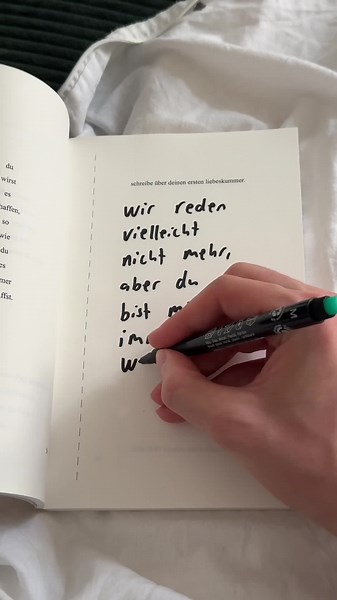 du
wirst
es
haffen,
so
wie
du
es
mer
ffst.
schreibe über deinen ersten liebeskummer.
wir reden
vielleicht
nicht mehr,
aber du
bist
M